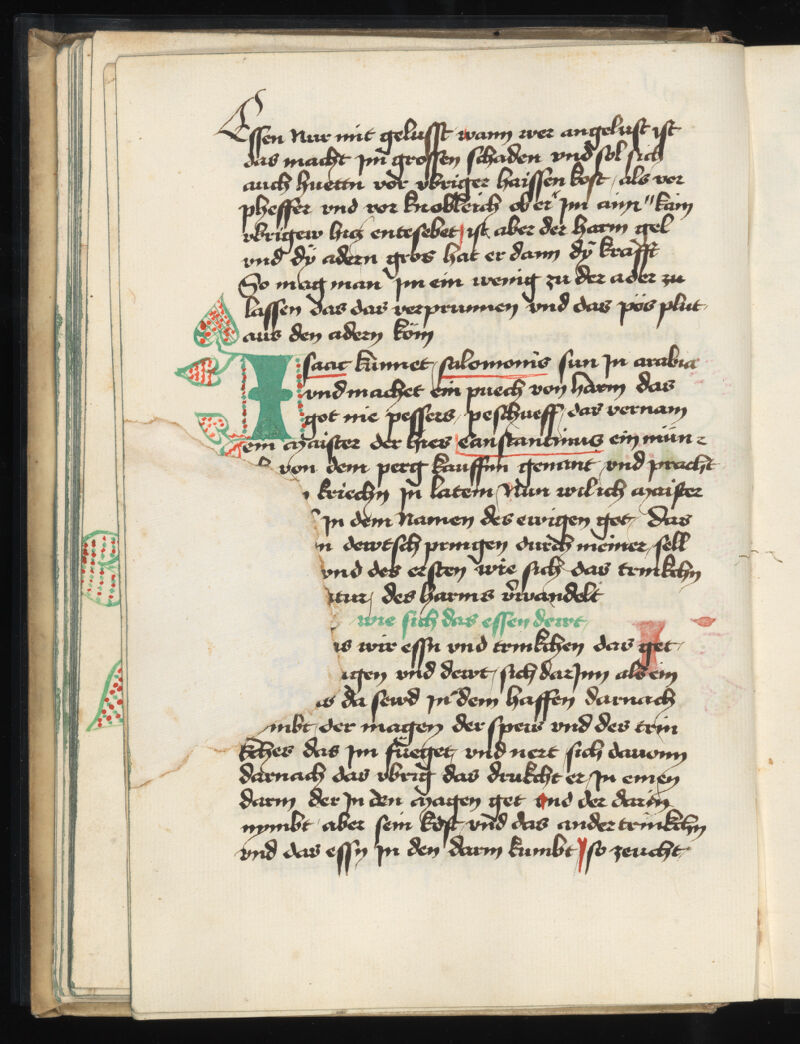 Essen Nur mit gelusst wann wer angelust ist
das macht im grossen schaden vnd sol sich
auch huettn vor vbriger haissen kost als vor
pheffer vnd vor knobleich ob er im ain kain
vbrigew hicz entsebet ist aber der harm gel
vnd dÿ adern gros hat er dann dÿ krafft
So mag man im ein wenig zu der ader zu
lassen das das verprunnen vnd das pös plut
aus den adern köm
Isaac kunnet salomonis sun In arabia
vnd machet ein puech von harm das
got nie pessers peschueff das vernam
ein maister der hies Canstantinus ein mün=
von dem perg kauffim genant vnd pracht
kriechn in latein Nun wil ich maister
In dem Namen des ewigen got Das
n dewtsch pringen durch meiner sell
vnd des ersten wie sich das trinkchn
atur des harms verwandelt
wie sich das essen dewt
as wir essn vnd trinkchen das get
agen vnd dewt sich darInn als ein
as da sewd In dem haffen darnach
imbt der magen der speis vnd des trin
kches das im fueget vnd nert sich dauonn
darnach das vbrig das drukcht er In einen
darm der In den magen get vnd der darm
nymbt aber sein kost vnd das ander trinkchn
vnd das essn In den darm kumbt so zeucht